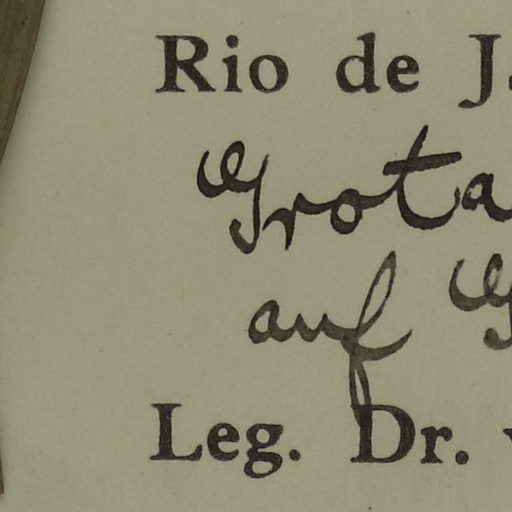 Rio de J
Grota
auf G
Leg. Dr.